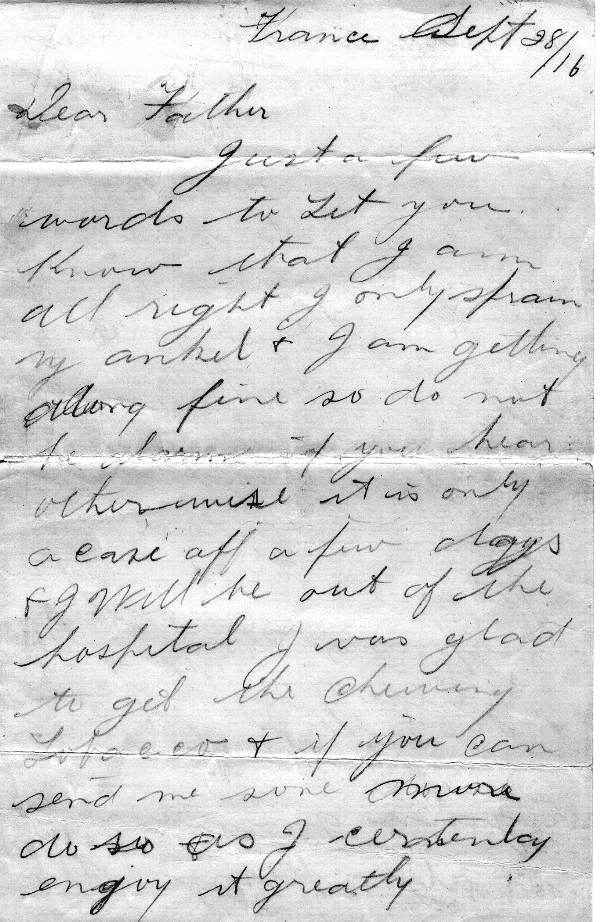 France Sept 28/16
Dear Father
Just a few
words to Let you
Know that I am
all right I only sprain
my ankel & I am getting
along fine so do not
be alarm if you hear
otherwise it is only
a case off a few days
& I Will be out of the
hospital I was glad
to get the Chewing
Tobacco & if you can
send me some more
do so as I certenlay
enjoy it greatly